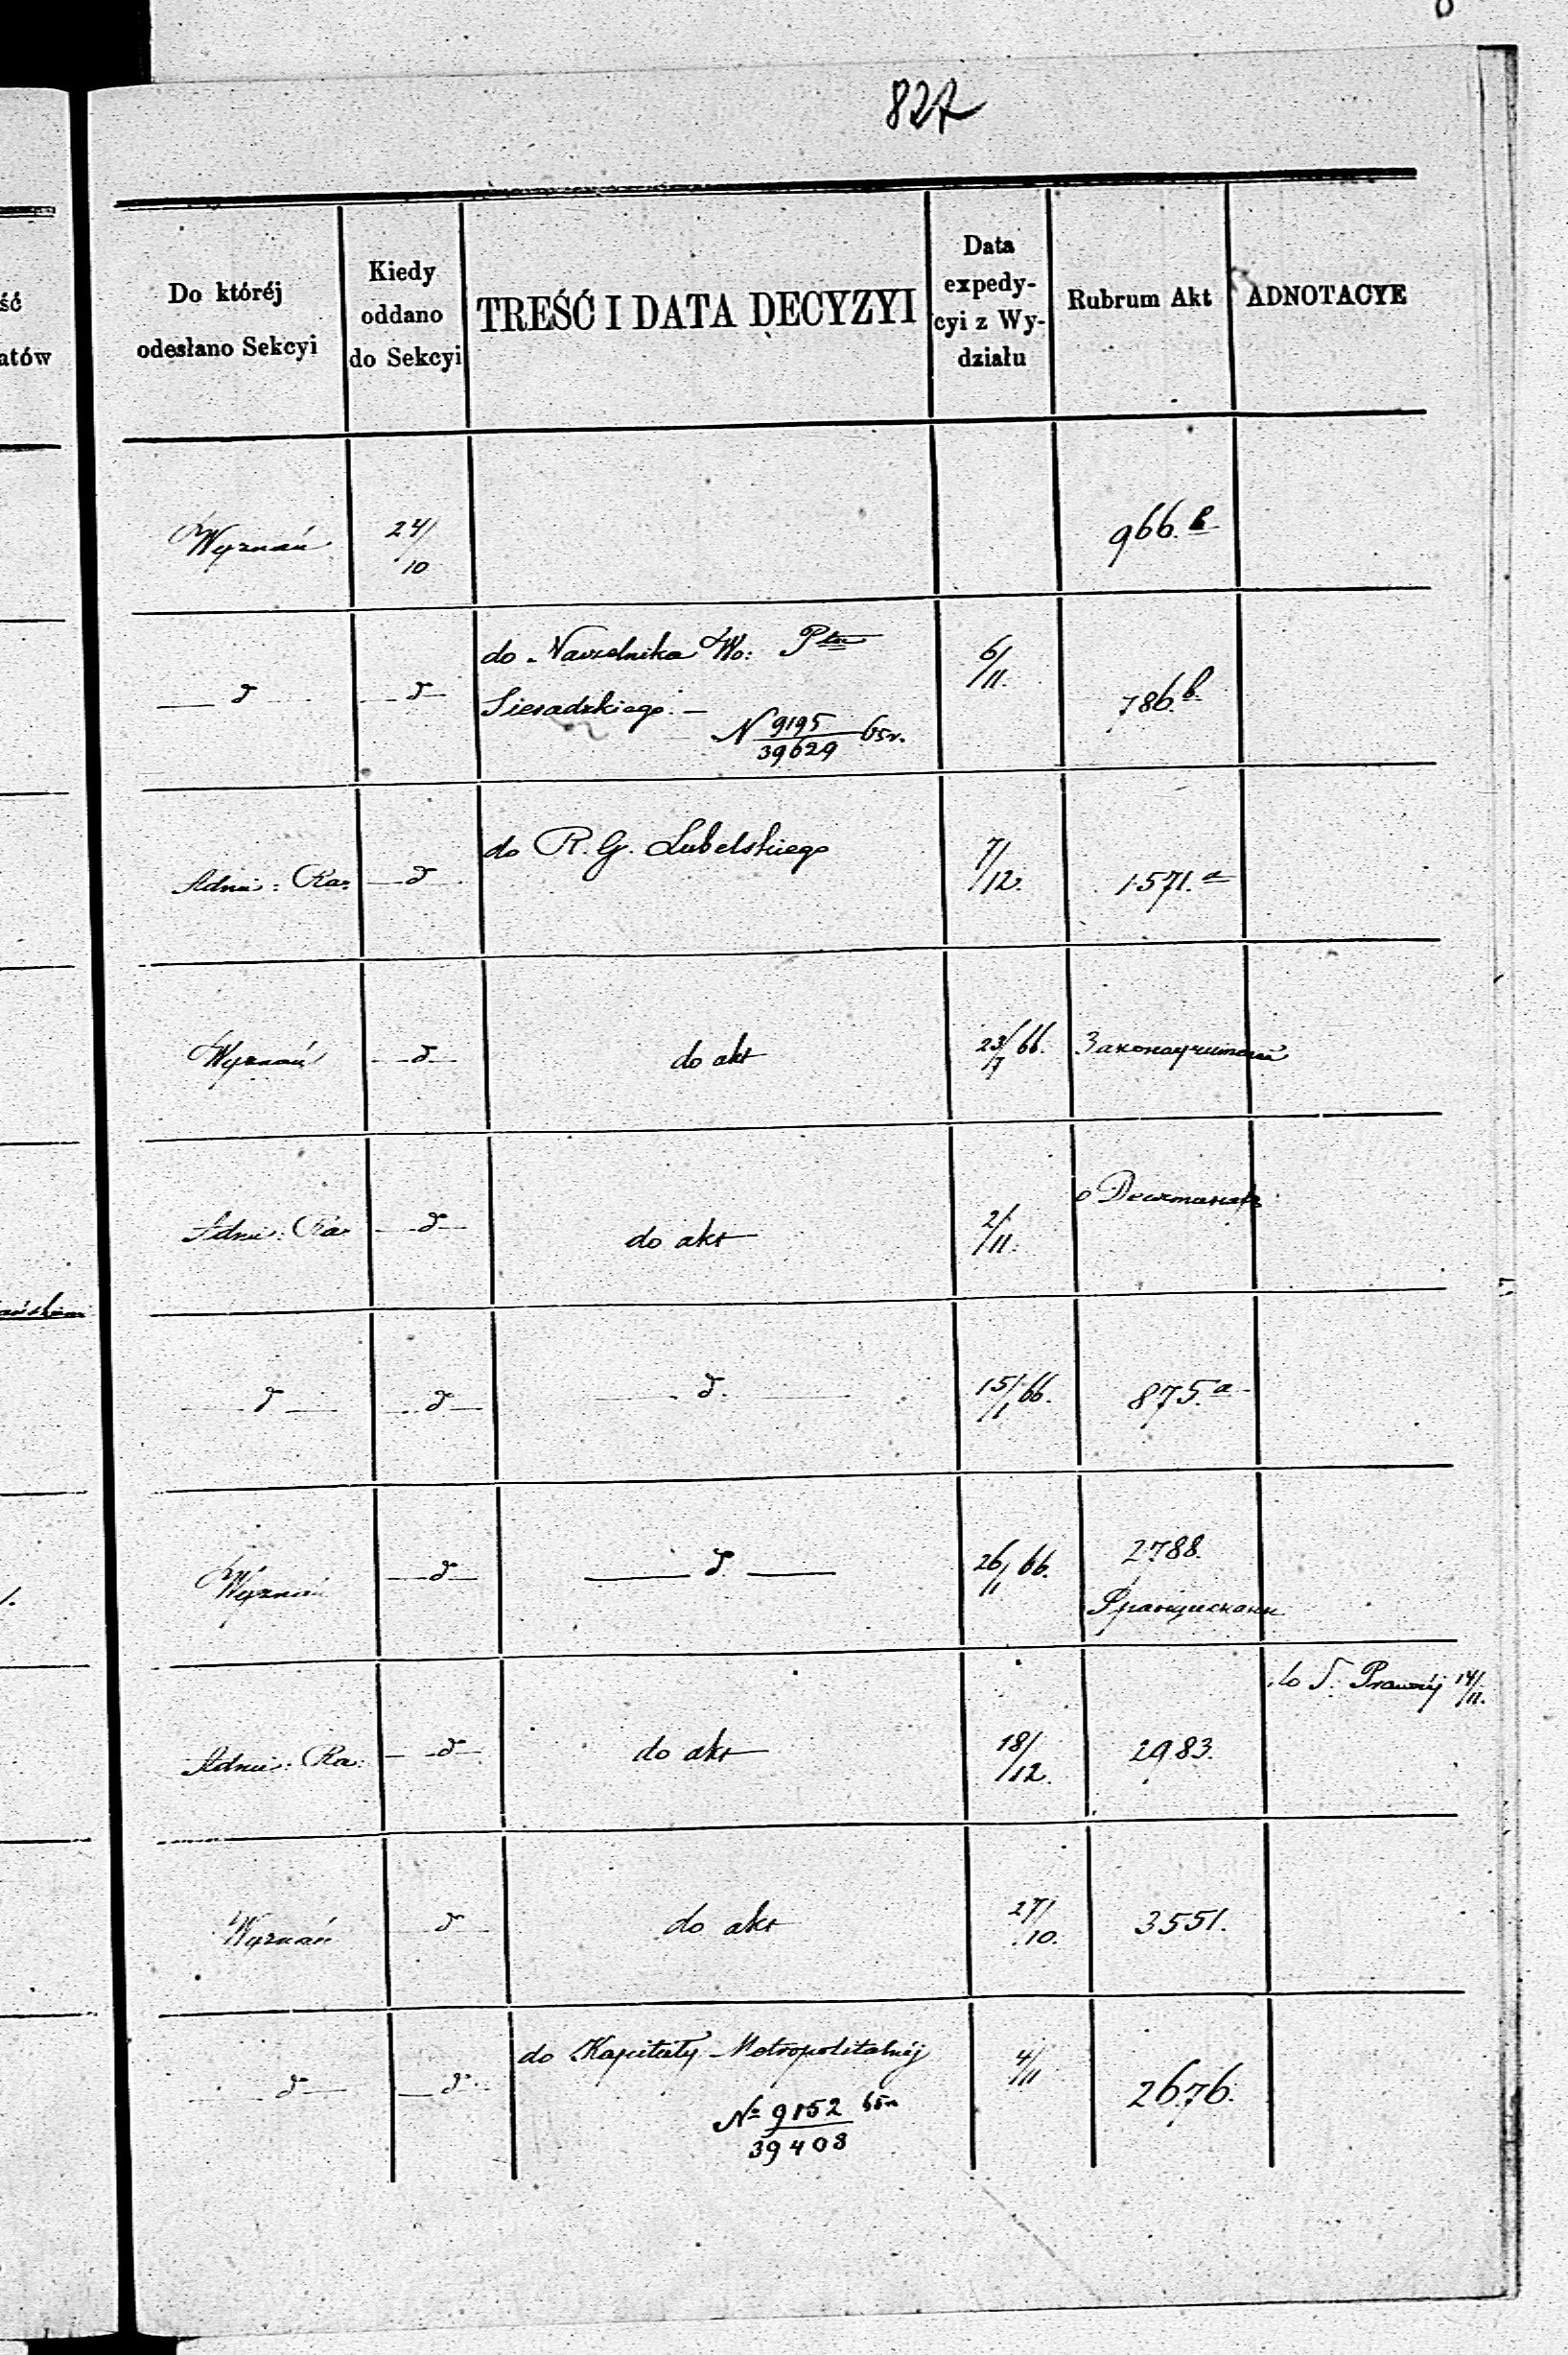 827
ść
atów
Do któréj
odesłano Sekcyi
Kiedy
oddano
do Sekcyi
TREŚĆ I DATA DECYZYI
Data
expedy-
cyi z Wy-
działu
Rubrum Akt
ADNOTACYE
Wyznań
24/10
966.b
d
d
do Naczelnika Wo: Ptu
Sieradzkiego. —
N 9195/39629 65r.
6/11.
786.b.
Admi: Ra:
d
do R. G. Lubelskiego
7/12.
1571.a
Wyznań
d
do akt
23/7 66.
Законоучителей
Admi: Ra:
d
do akt
2/11.
d
d
d.
15/1 66.
875.a
Wyznań
d
d
26/11 66.
2788.
Францискани
Admi: Ra:
d
do akt
18/12.
2983.
do S. Prawnéj 14/11.
Wyznań
d
do akt
27/10.
3551.
d
d
do Kapituły Metropolitalnéj
№ 9152/39408 65r
4/11
2676.